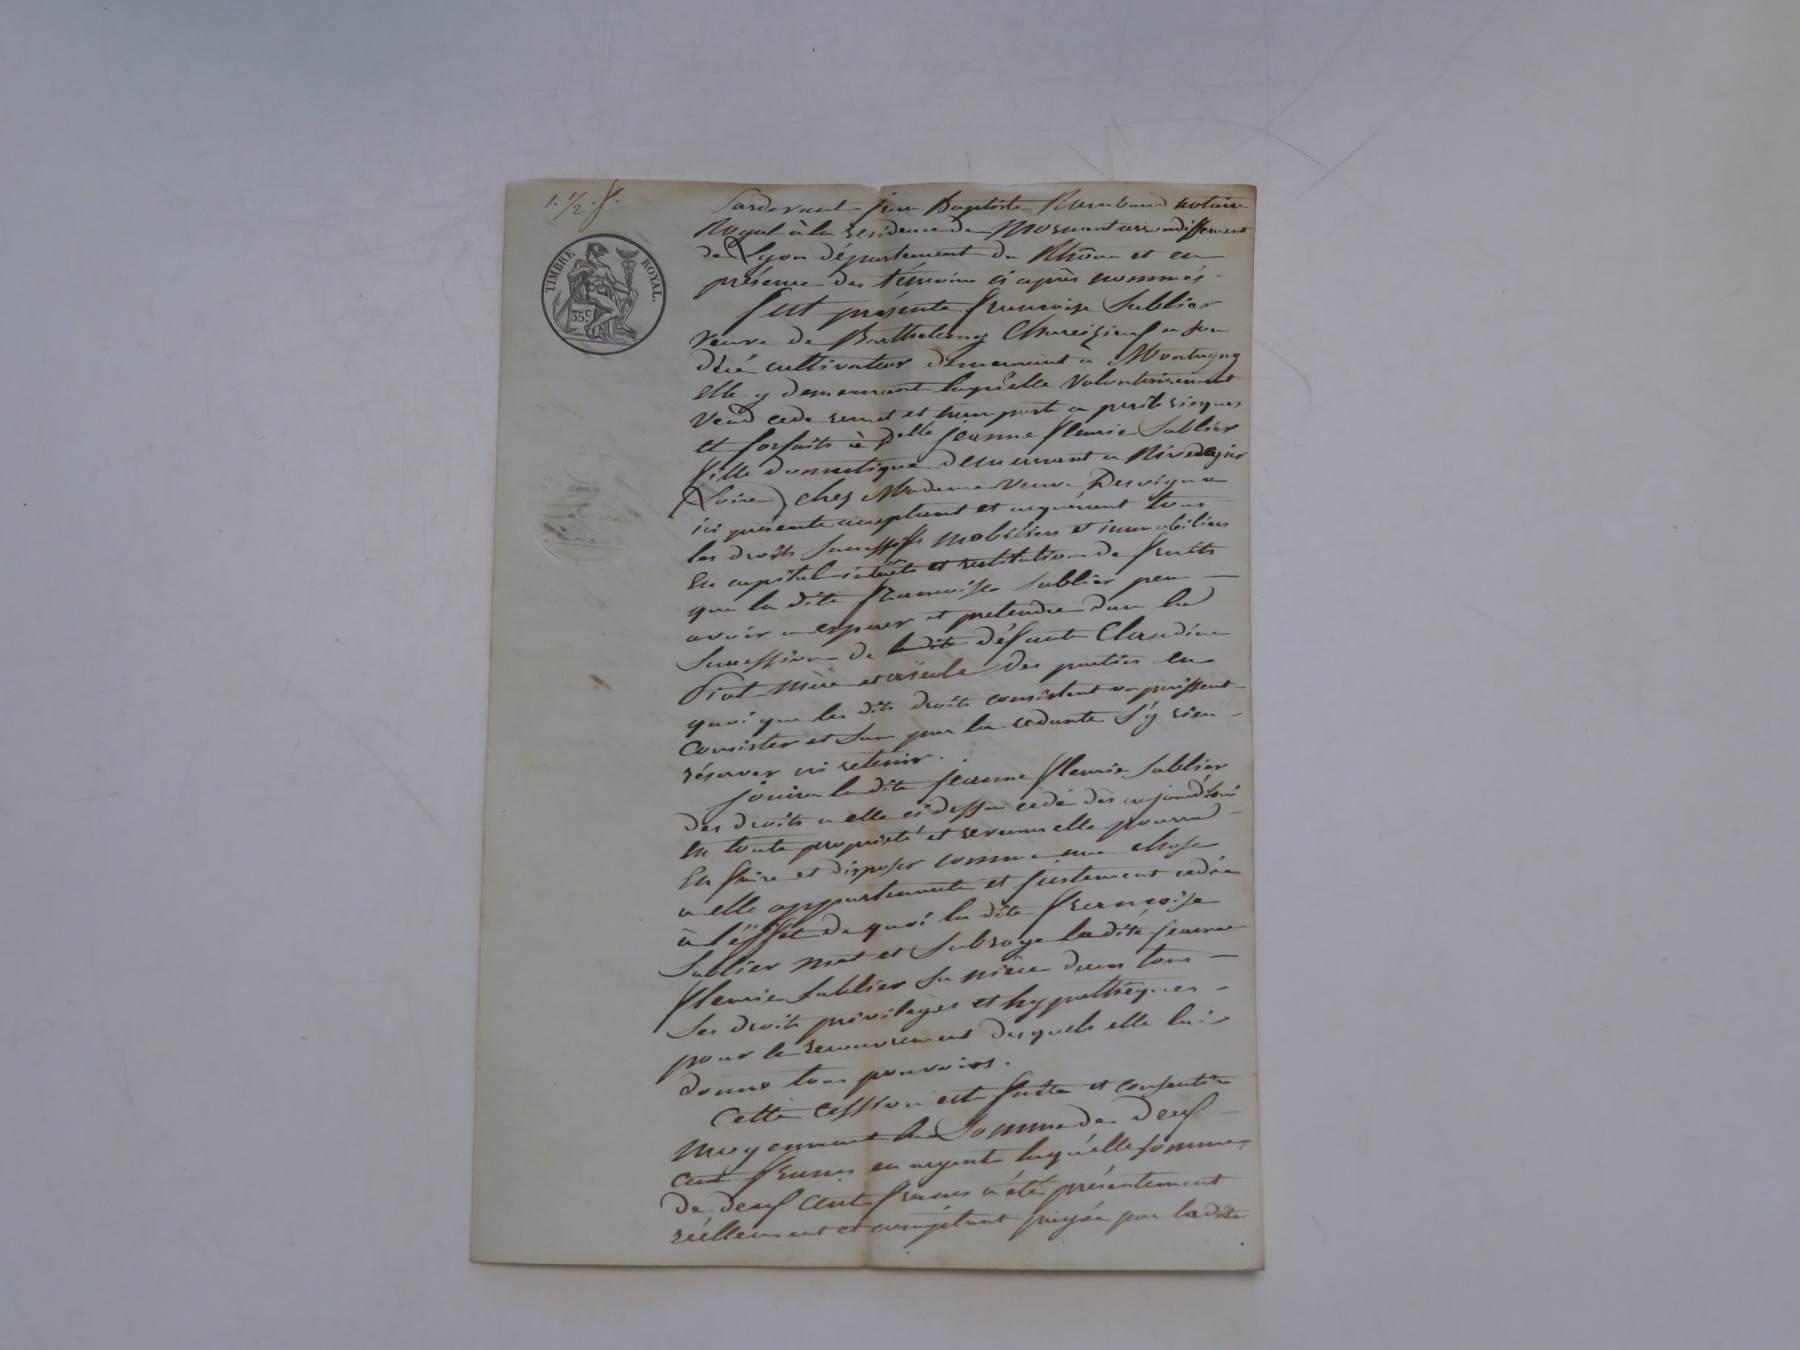 1. 1/2. f.
TIMBRE ROYAL.
35 c
Pardevant jean Baptiste Rambaud notaire
Royal à la residence de Mornant arrondissement
de Lyon département du Rhône et en
présence des témoins ci après nommés.
fut présente françoise Sablier
veuve de Barthelemy
cultivateur demeurant à Montagny
elle y demeurant laqu'elle volontairement
vend cede remet et transporte a perils risques
et forfaits à Delle jeanne fleurie Sablier
fille domestique demeurant a Rivedegier
(Loire) chez Madame veuve Desvigne
ici présente acceptant et acquérant tous
les droits successifs mobiliers et immobiliers
En capital intérêts et restitution de fruits
que la dite françoise Sablier peu
avoir a esperer et pretendre dans la
Succession de la dite défunte Claudine
Piot mère et aïeule des parties en
quoi que les dits droits consistent ou puissent
Consister et sans par la cedante s'y rien
réserver ni retenir.
Jouira la dite jeanne fleurie Sablier
des droits a elle ci dessus cedé dès
En toute propriété et revenu elle pourra
En faire et disposer comme une chose
a elle appartenante et justement cedée
à l'éffet de quoi la dite françoise
Sablier met et Subroge la dite jeanne
fleurie Sablier sa nièce dans tous
Ses droits privilèges et hypothèques
pour le recouvrement desquels elle lui
donne tous pouvoirs.
Cette Cession est faite et consentie
moyennant la Somme de deux
cent francs en argent laqu'elle somme
de deux cent francs a été présentement
réellement et comptant payée par la dite